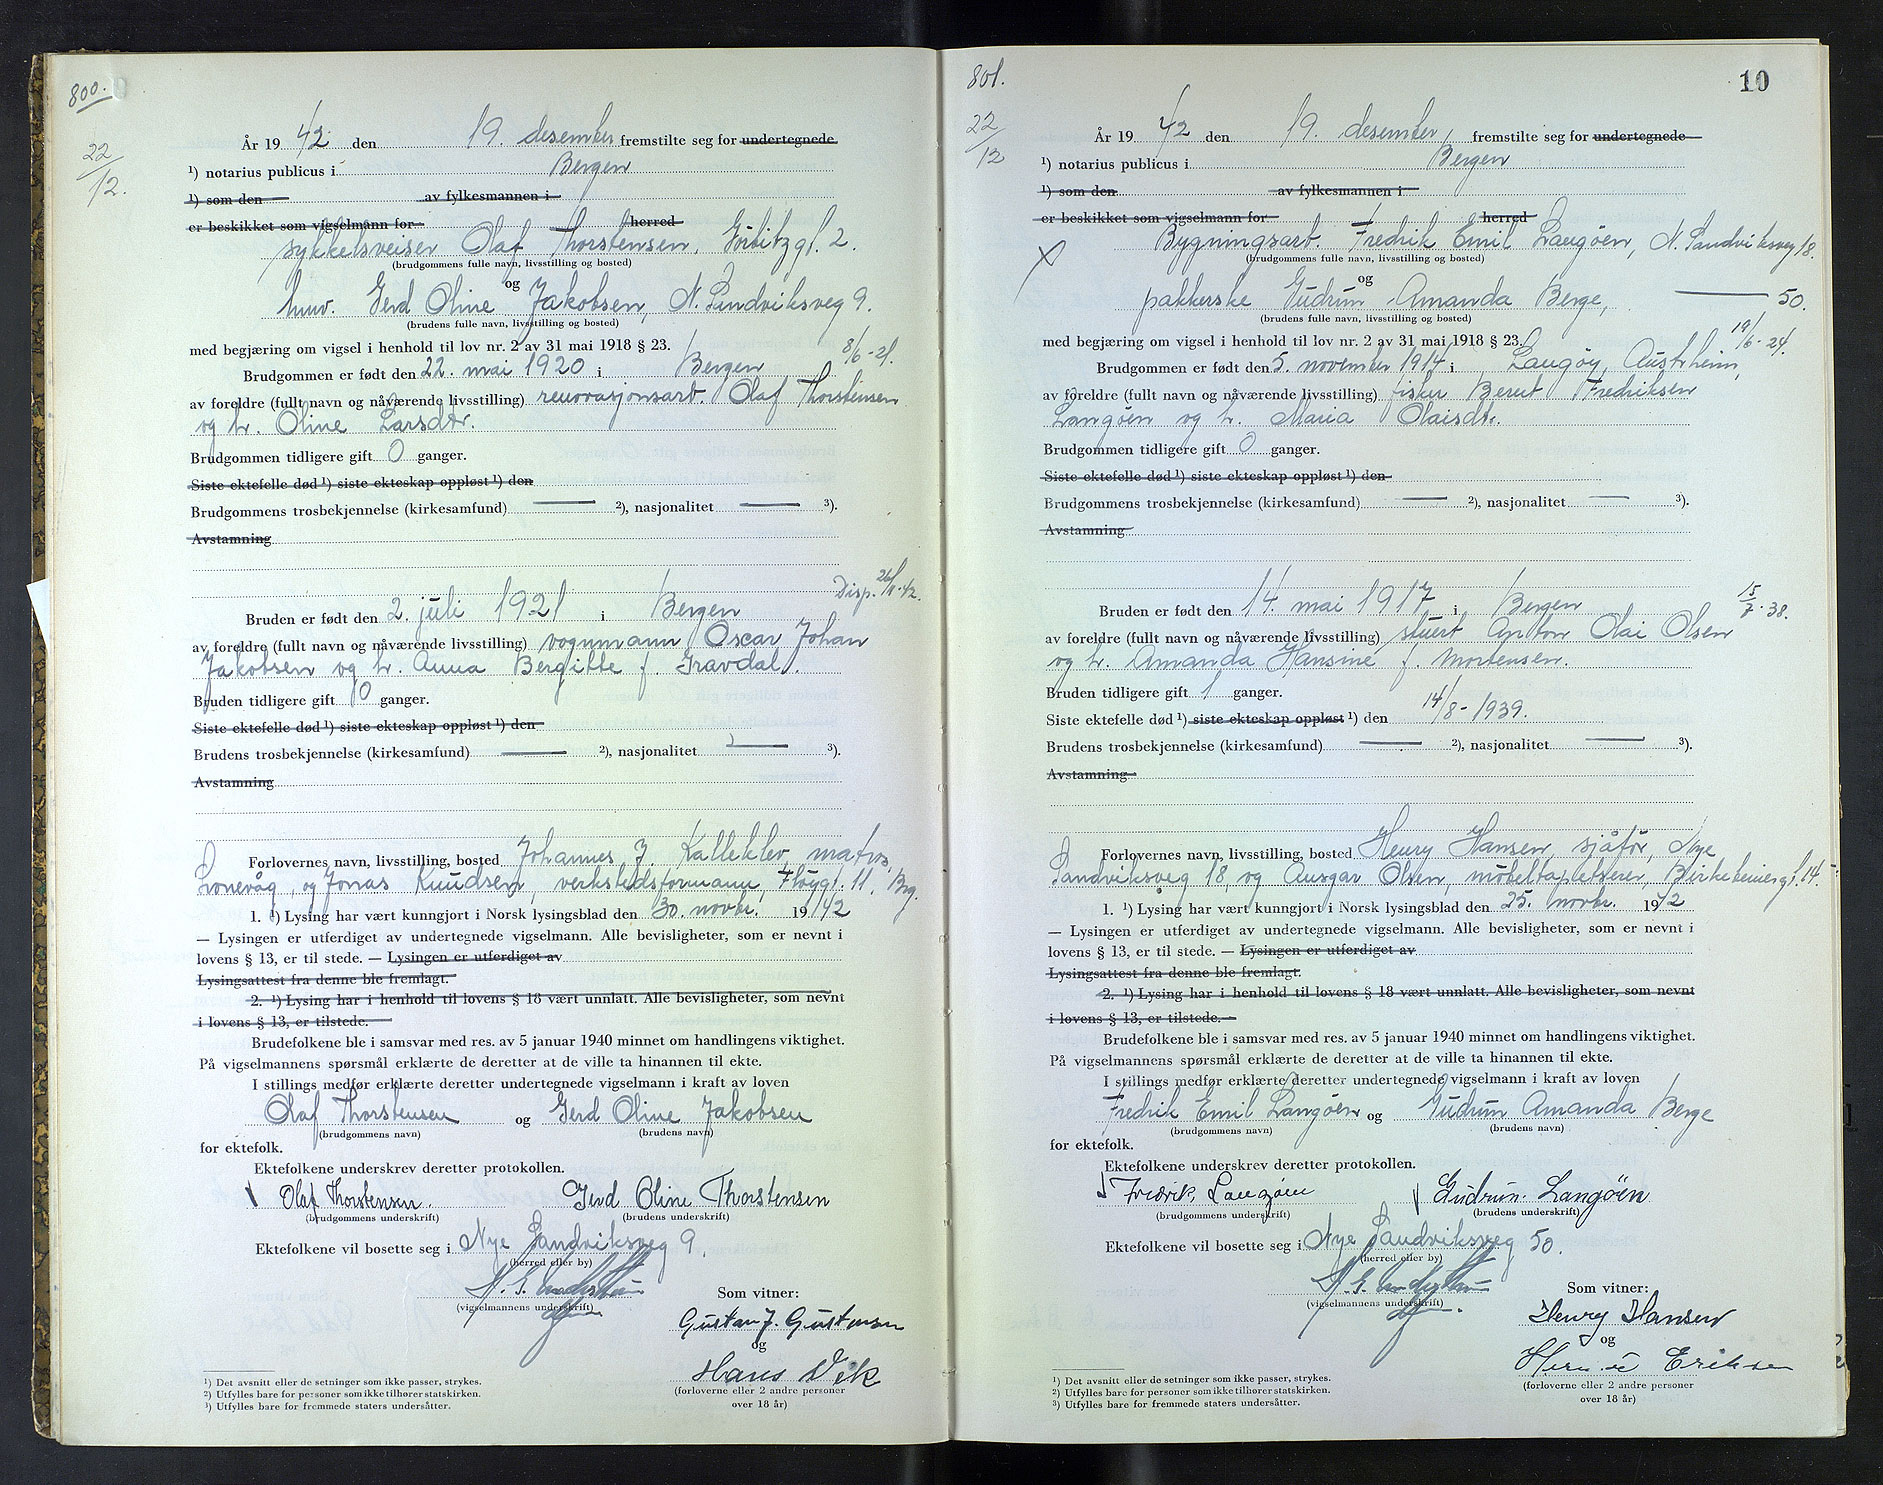 800.
22/12.
År 19 42 den 19. desember fremstilte seg for undertegnede
¹) notarius publicus i Bergen
¹) som den av fylkesmannen i
er beskikket som vigselmann for herred
sykkelsveiser Olaf Thorstensen, Görbitzgt. 2.
(brudgommens fulle navn, livsstilling og bosted)
og
huuv. Gerd Oline Jakobsen, N. Sandviksveg 9.
(brudens fulle navn, livsstilling og bosted)
med begjæring om vigsel i henhold til lov nr. 2 av 31 mai 1918 § 23.
8/6-21.
Brudgommen er født den 22. mai 1920 i Bergen
av foreldre (fullt navn og nåværende livsstilling) renovasjonsarb. Olaf Thorstensen
og h. Oline Larsdtr.
Brudgommen tidligere gift 0 ganger.
Siste ektefelle død ¹) siste ekteskap oppløst ¹) den
Brudgommens trosbekjennelse (kirkesamfund) — ²), nasjonalitet — ³).
Avstamning
Disp. 26/11-42.
Bruden er født den 2. juli 1921 i Bergen
av foreldre (fullt navn og nåværende livsstilling) vognmann Oscar Johan
Jakobsen og h. Anna Bergitte f. Gravdal.
Bruden tidligere gift 0 ganger.
Siste ektefelle død ¹) siste ekteskap oppløst ¹) den
Brudens trosbekjennelse (kirkesamfund) — ²), nasjonalitet — ³).
Avstamning
Forlovernes navn, livsstilling, bosted Johannes J. Kalleklev, matros,
Lonevåg, og Jonas Knudsen, verkstedsformann, Fløygt. 11, Brg.
1. ¹) Lysing har vært kunngjort i Norsk lysingsblad den 30. novbr. 19 42
— Lysingen er utferdiget av undertegnede vigselmann. Alle bevisligheter, som er nevnt i
lovens § 13, er til stede. — Lysingen er utferdiget av
Lysingsattest fra denne ble fremlagt.
2. ¹) Lysing har i henhold til lovens § 18 vært unnlatt. Alle bevisligheter, som nevnt
i lovens § 13, er tilstede.
Brudefolkene ble i samsvar med res. av 5 januar 1940 minnet om handlingens viktighet.
På vigselmannens spørsmål erklærte de deretter at de ville ta hinannen til ekte.
I stillings medfør erklærte deretter undertegnede vigselmann i kraft av loven
Olaf Thorstensen og Gerd Oline Jakobsen
(brudgommens navn) (brudens navn)
for ektefolk.
Ektefolkene underskrev deretter protokollen.
Olaf Thorstensen. Gerd Oline Thorstensen
(brudgommens underskrift) (brudens underskrift)
Ektefolkene vil bosette seg i Nye Sandviksveg 9.
(herred eller by)
(vigselmannens underskrift)
Som vitner:
Gustav J. Gustavsen
og
Hans Vik
(forloverne eller 2 andre personer
over 18 år)
¹) Det avsnitt eller de setninger som ikke passer, strykes.
²) Utfylles bare for personer som ikke tilhører statskirken.
³) Utfylles bare for fremmede staters undersåtter.
801.
10
22/12
År 19 42 den 19. desember, fremstilte seg for undertegnede
¹) notarius publicus i Bergen
¹) som den av fylkesmannen i
er beskikket som vigselmann for herred
X
Bygningsarb. Fredrik Emil Langöen, N. Sandviksveg 18.
(brudgommens fulle navn, livsstilling og bosted)
og
pakkerske Gudrun Amanda Berge, — 50.
(brudens fulle navn, livsstilling og bosted)
med begjæring om vigsel i henhold til lov nr. 2 av 31 mai 1918 § 23.
19/6-24.
Brudgommen er født den 5. november 1914 i Langöy, Austrheim,
av foreldre (fullt navn og nåværende livsstilling) fisker Berent Fredriksen
Langöen og h. Maria Olaisdtr.
Brudgommen tidligere gift 0 ganger.
Siste ektefelle død ¹) siste ekteskap oppløst ¹) den
Brudgommens trosbekjennelse (kirkesamfund) — ²), nasjonalitet — ³).
Avstamning
15/7-38.
Bruden er født den 14. mai 1917 i Bergen
av foreldre (fullt navn og nåværende livsstilling) stuert Anton Olai Olsen
og h. Amanda Hansine f. Mortensen.
Bruden tidligere gift 1 ganger.
Siste ektefelle død ¹) siste ekteskap oppløst ¹) den 14/8-1939.
Brudens trosbekjennelse (kirkesamfund) — ²), nasjonalitet — ³).
Avstamning
Forlovernes navn, livsstilling, bosted Henry Hansen, sjåför, Nye
Sandviksveg 18, og Ansgar Olsen, möbeltapetserer, Birkebeinergt. 14.
1. ¹) Lysing har vært kunngjort i Norsk lysingsblad den 25. novbr. 19 42
— Lysingen er utferdiget av undertegnede vigselmann. Alle bevisligheter, som er nevnt i
lovens § 13, er til stede. — Lysingen er utferdiget av
Lysingsattest fra denne ble fremlagt.
2. ¹) Lysing har i henhold til lovens § 18 vært unnlatt. Alle bevisligheter, som nevnt
i lovens § 13, er tilstede.
Brudefolkene ble i samsvar med res. av 5 januar 1940 minnet om handlingens viktighet.
På vigselmannens spørsmål erklærte de deretter at de ville ta hinannen til ekte.
I stillings medfør erklærte deretter undertegnede vigselmann i kraft av loven
Fredrik Emil Langöen og Gudrun Amanda Berge
(brudgommens navn) (brudens navn)
for ektefolk.
Ektefolkene underskrev deretter protokollen.
Fredrik Langöen Gudrun Langöen
(brudgommens underskrift) (brudens underskrift)
Ektefolkene vil bosette seg i Nye Sandviksveg 50.
(herred eller by)
(vigselmannens underskrift)
Som vitner:
Henry Hansen
og
Eriksen
(forloverne eller 2 andre personer
over 18 år)
¹) Det avsnitt eller de setninger som ikke passer, strykes.
²) Utfylles bare for personer som ikke tilhører statskirken.
³) Utfylles bare for fremmede staters undersåtter.